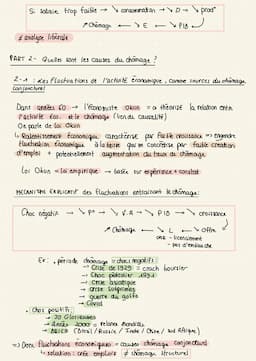 Si salaire trop faible → ↘ consommation → ↘ D → ↘ prod°
↗ Chômage ← ↘ E ← ↘ PIB
≠ analyse libérale
PART 2 - Quelles sont les causes du chômage ?
2-1 : Les fluctuations de l'activité économique, comme sources du chômage conjoncturel
Dans années 60 → l'économiste Okun = a théorisé la relation entre
l'activité éco. et le chômage (lien du causalité)
On parle de Loi Okun
↳ Ralentissement économique caractérisé par faible croissance → engendre
fluctuation économique à la baisse qui se concrétise par faible création
d'emploi + potentiellement augmentation du taux de chômage
Loi Okun = loi empirique → basée sur expérience + constat
MECANISME EXPLICATIF des fluctuations entraînant le chômage :
Choc négatif → ↘ P° → ↘ V.A → ↘ PIB → ↘ croissance
↗ Chômage ← ↘ L ← ↘ Offre
- licenciement
- pas d'embauche
Ex : • période chômage = chocs négatifs :
→ Crise de 1929 = crash boursier
→ Choc pétrolier 1973
→ Crise asiatique
→ Crise subprimes
→ guerre du golfe
→ Covid
• Choc positif :
→ 30 Glorieuses
→ Années 2000 = relance mondiale
→ BRICS (Brésil / Russie / Inde / Chine / Sud Afrique)
=> Donc fluctuations économiques = causes chômage conjoncturel
↳ solution : créer emplois ≠ chômage structurel